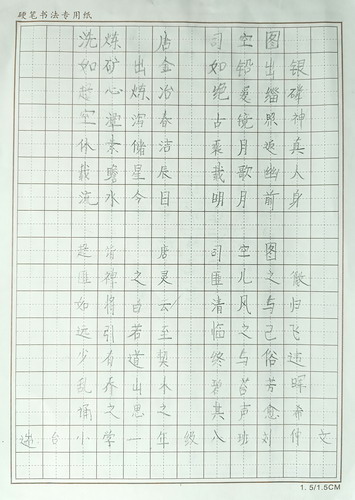 硬笔书法专用纸
洗炼 唐 司空图
如矿出金 如铅出银
超心炼冶 绝爱缁磷
空潭泻春 古镜照神
体素储洁 乘月返真
载瞻星辰 载歌幽人
流水今日 明月前身
超诣 唐 司空图
匪神之灵 匪几之微
如将白云 清风与归
远引若至 临之己飞
少有道契 终与俗违
乱乔山木 碧苔芳晖
诵之思之 其声愈希
台小学一年级八班刘仲文
1.5/1.5CM